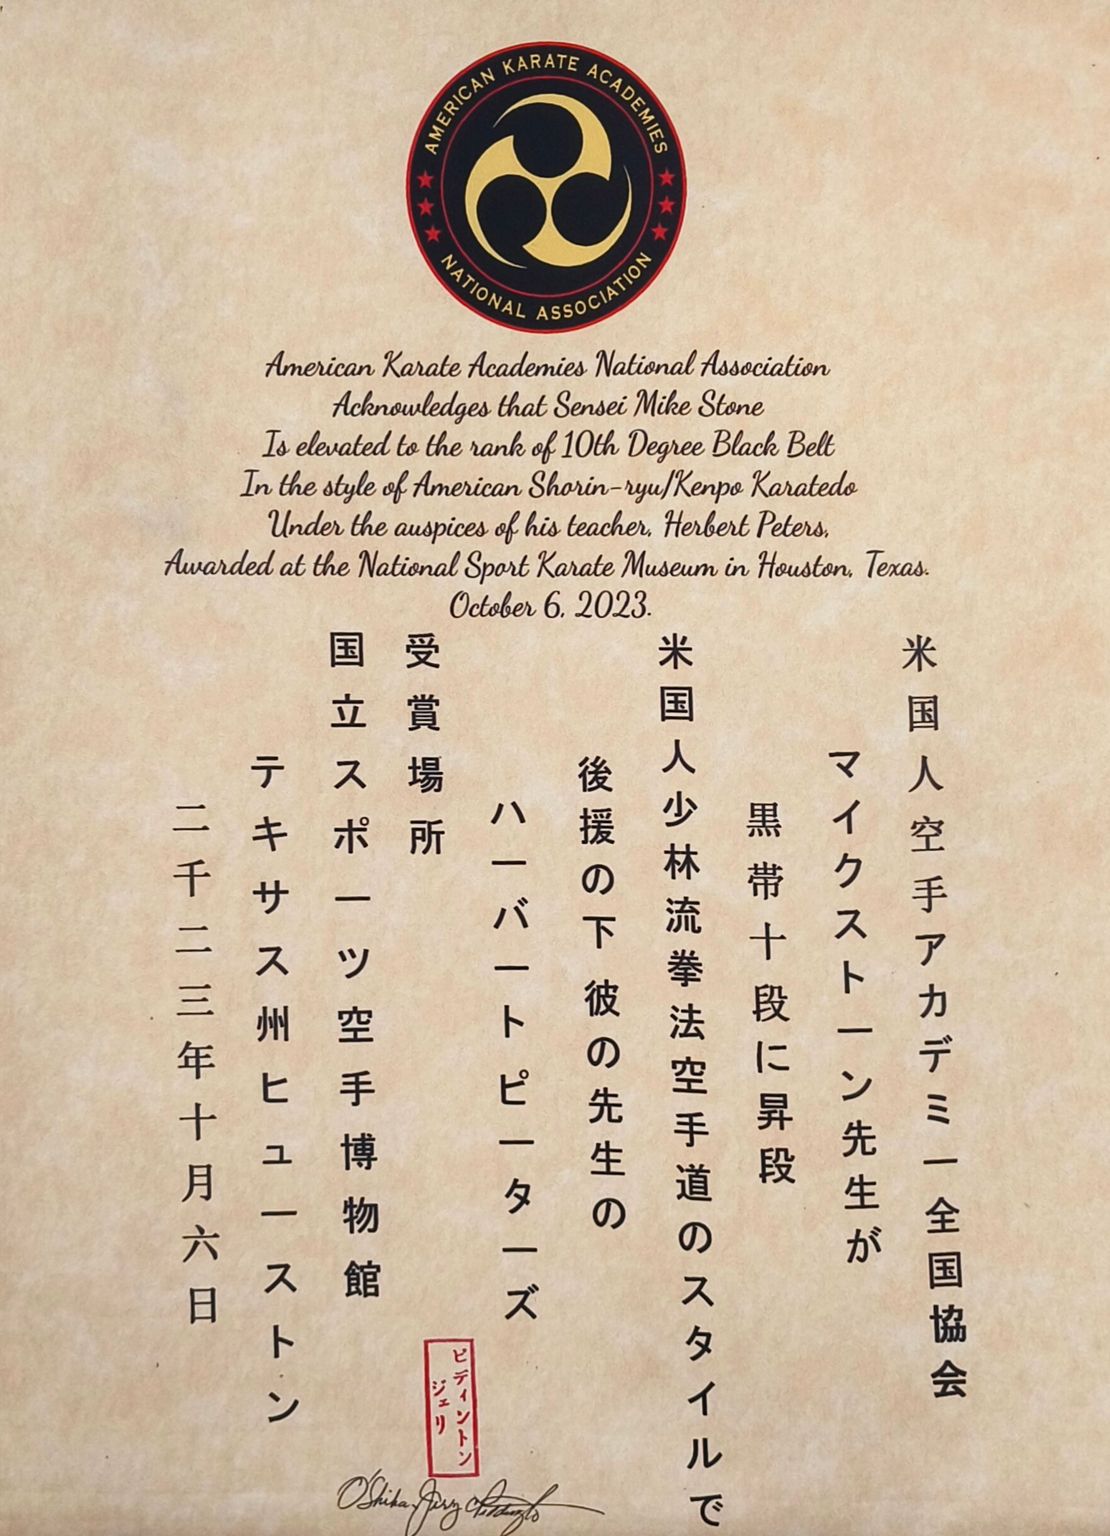 AMERICAN KARATE ACADEMIES
NATIONAL ASSOCIATION
American Karate Academies National Association
Acknowledges that Sensei Mike Stone
Is elevated to the rank of 10th Degree Black Belt
In the style of American Shorin-ryu/Kenpo Karatedo
Under the auspices of his teacher, Herbert Peters,
Awarded at the National Sport Karate Museum in Houston, Texas.
October 6, 2023.
米国人空手アカデミー全国協会
マイクストーン先生が
黒帯十段に昇段
米国人少林流拳法空手道のスタイルで
後援の下 彼の先生の
ハーバートピーターズ
受賞場所
国立スポーツ空手博物館
テキサス州ヒューストン
二千二三年十月六日
ピディントン
ジェリ
O'Shihan Jerry